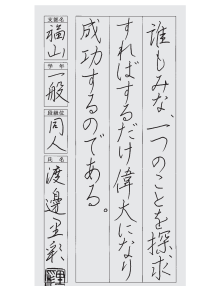 誰もみな、一つのことを探求
すればするだけ偉大になり
成功するのである。
支部名
福山
学年
一般
段級位
同人
氏名
渡邊里彩